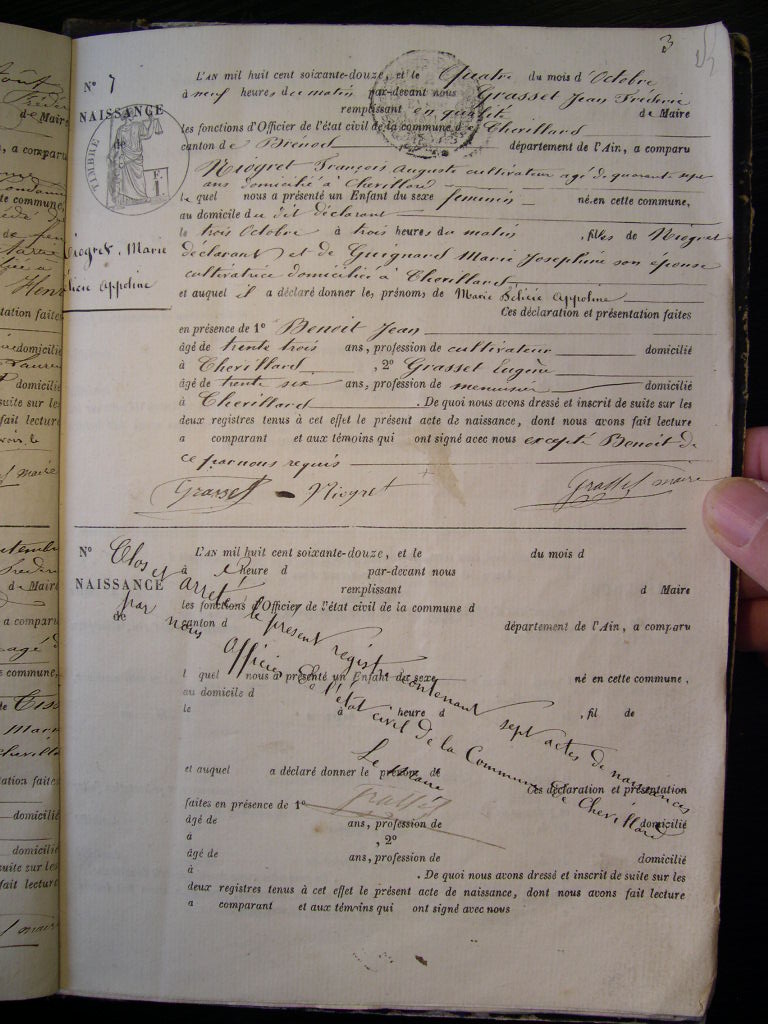 3
N° 7
NAISSANCE
de
Niogret, Marie
Félicie Appoline
TIMBRE
L'AN mil huit cent soixante-douze, et le Quatre du mois d'Octobre
à neuf heures du matin par-devant nous Grasset Jean Fréderic
remplissant en qualité de Maire
les fonctions d'Officier de l'état civil de la commune de Chevillard
canton de Brenod département de l'Ain, a comparu
Niogret François Auguste cultivateur agé de quarante sept
ans domicilié à Chevillard
le quel nous a présenté un Enfant du sexe feminin né en cette commune,
au domicile du dit déclarant
le trois Octobre à trois heures du matin, fille de Niogret
déclarant et de Guignard Marie Josephine son épouse
cultivatrice domiciliée à Chevillard
et auquel il a déclaré donner les prénoms de Marie Félicie Appoline
Ces déclaration et présentation faites
en présence de 1° Benoit Jean
âgé de trente trois ans, profession de cultivateur domicilié
à Chevillard, 2° Grasset Eugène
âgé de trente six ans, profession de menuisier domicilié
à Chevillard. De quoi nous avons dressé et inscrit de suite sur les
deux registres tenus à cet effet le présent acte de naissance, dont nous avons fait lecture
a comparant et aux témoins qui ont signé avec nous excepté Benoit de
ce par nous requis
Grasset Niogret Grasset maire
N°
NAISSANCE
de
L'AN mil huit cent soixante-douze, et le du mois d
à heure d par-devant nous
remplissant d Maire
les fonctions d'Officier de l'état civil de la commune d
canton d département de l'Ain, a comparu
l quel nous a présenté un Enfant du sexe né en cette commune,
au domicile d
le à heure d , fil de
et auquel a déclaré donner le prénom de
Ces déclaration et présentation
faites en présence de 1°
âgé de ans, profession de domicilié
à , 2°
âgé de ans, profession de domicilié
à . De quoi nous avons dressé et inscrit de suite sur les
deux registres tenus à cet effet le présent acte de naissance, dont nous avons fait lecture
a comparant et aux témoins qui ont signé avec nous
Clos et arrêté le present registre contenant sept actes de naissances
par nous Officier de l'état civil de la Commune de Chevillard
Le Maire
Grasset